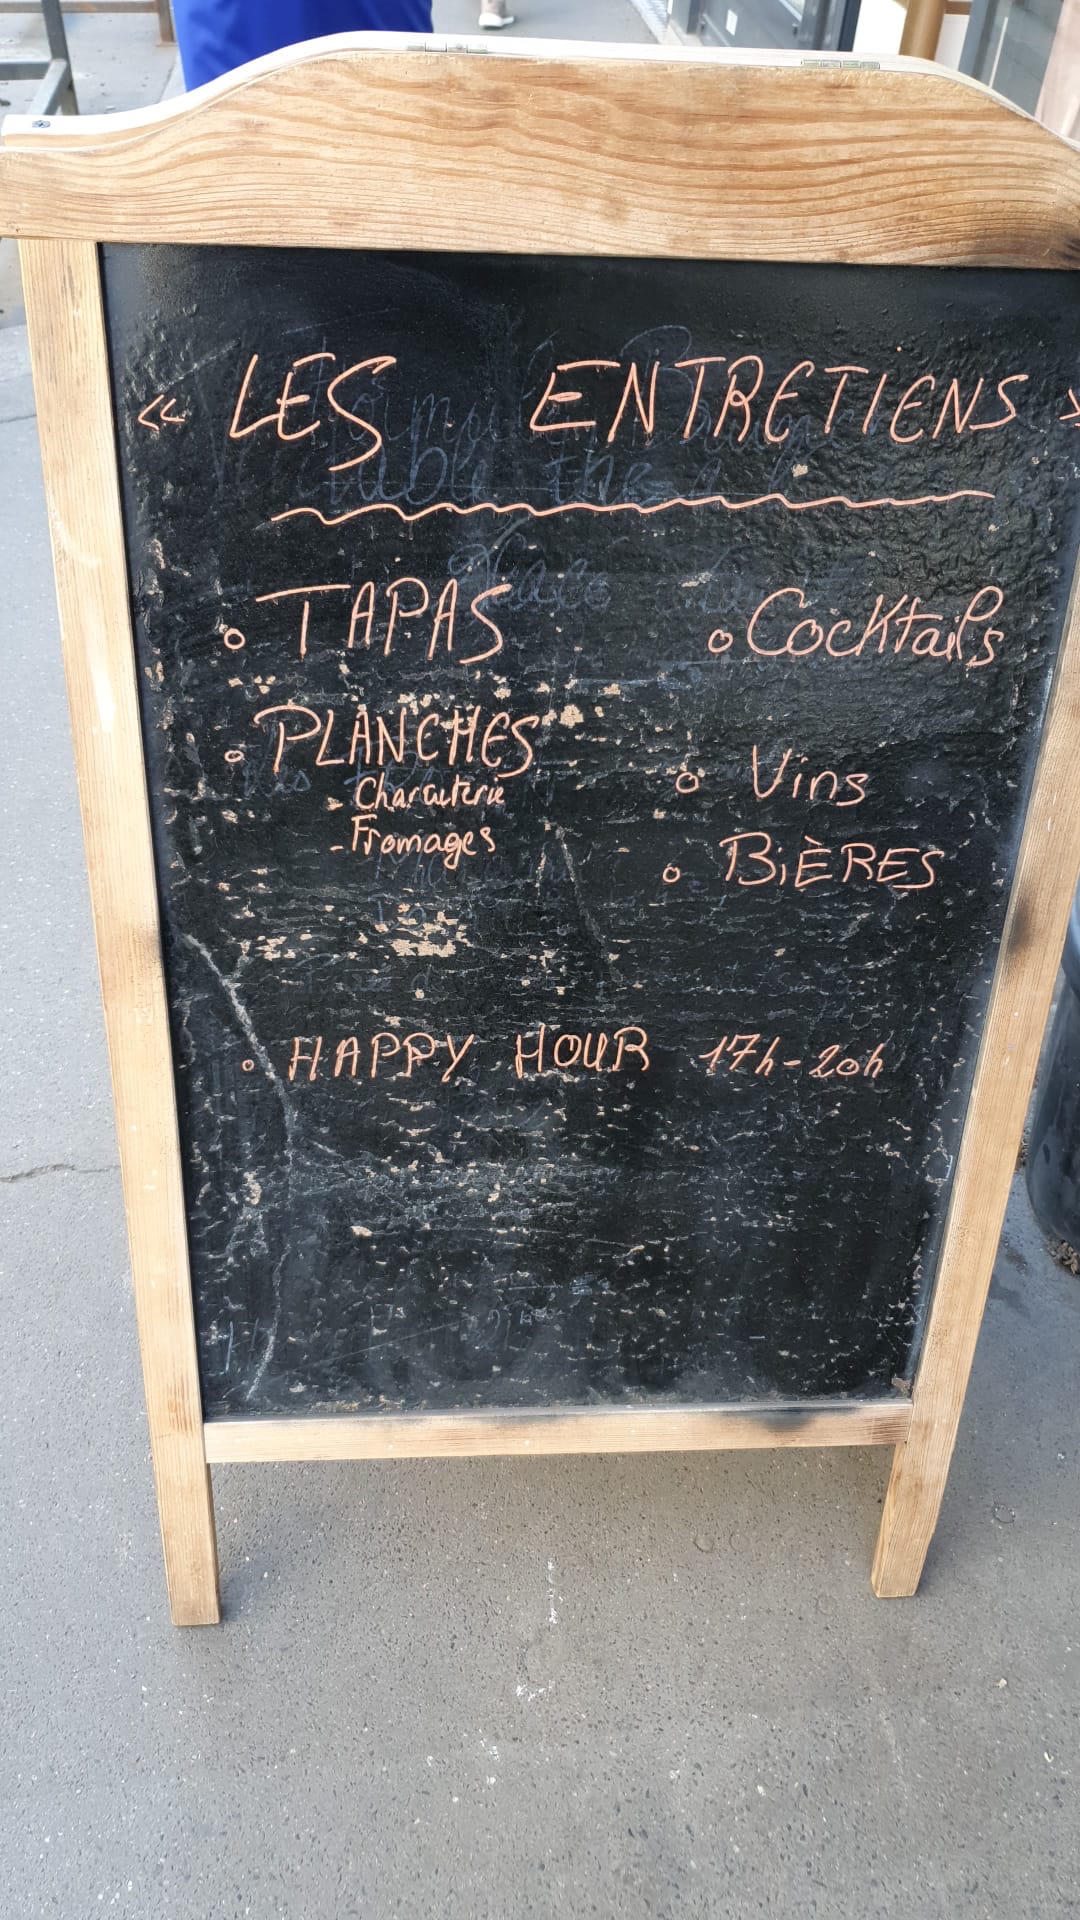 « LES ENTRETIENS »
° TAPAS
° PLANCHES
- Charcuterie
- Fromages
° Cocktails
° Vins
° BIÈRES
° HAPPY HOUR 17h-20h